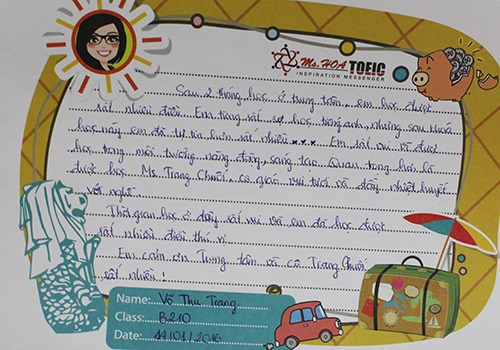 Ms. HOA TOEIC
INSPIRATION MESSENGER
Sau 2 tháng học ở trung tâm, em học được
rất nhiều điều. Em từng rất sợ học tiếng anh, nhưng sau khoá
học này em đã tự tin hơn rất nhiều... Em rất vui vì được
học trong môi trường năng động, sáng tạo. Quan trọng hơn là
được học Ms. Trang Chuối, cô giáo vui tươi và đầy nhiệt huyết
với nghề.
Thời gian học ở đây rất vui và em đã học được
rất nhiều điều thú vị.
Em cảm ơn Trung tâm và cô Trang Chuối
rất nhiều!
Name: Võ Thu Trang
Class: B210
Date: 14/01/2016